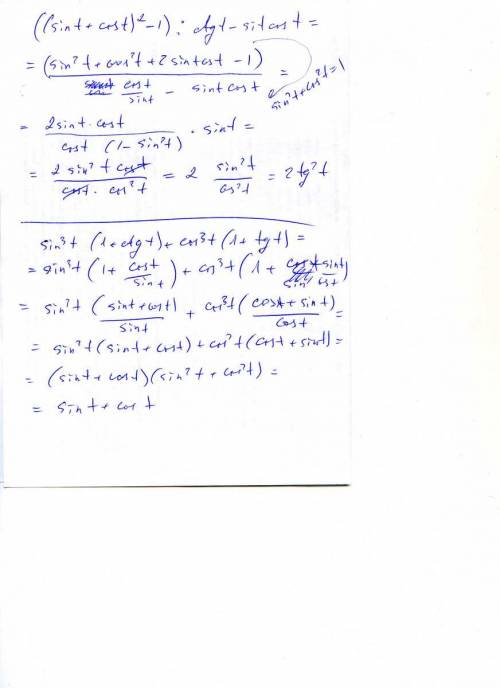 ((sint + cost)² - 1) : ctgt - sitcost =
= (sin²t + cos²t + 2sintcost - 1) / (cost/sint - sintcost) =
sin²t + cos²t = 1
= 2sint·cost / cost (1 - sin²t) · sint =
= 2 sin²t cost / cost · cos²t = 2 sin²t / cos²t = 2tg²t
sin³t (1 + ctgt) + cos³t (1 + tgt) =
= sin³t (1 + cost/sint) + cos³t (1 + sint/cost)
= sin³t (sint + cost)/sint + cos³t (cost + sint)/cost =
= sin²t (sint + cost) + cos²t (cost + sint) =
= (sint + cost)(sin²t + cos²t) =
= sint + cost